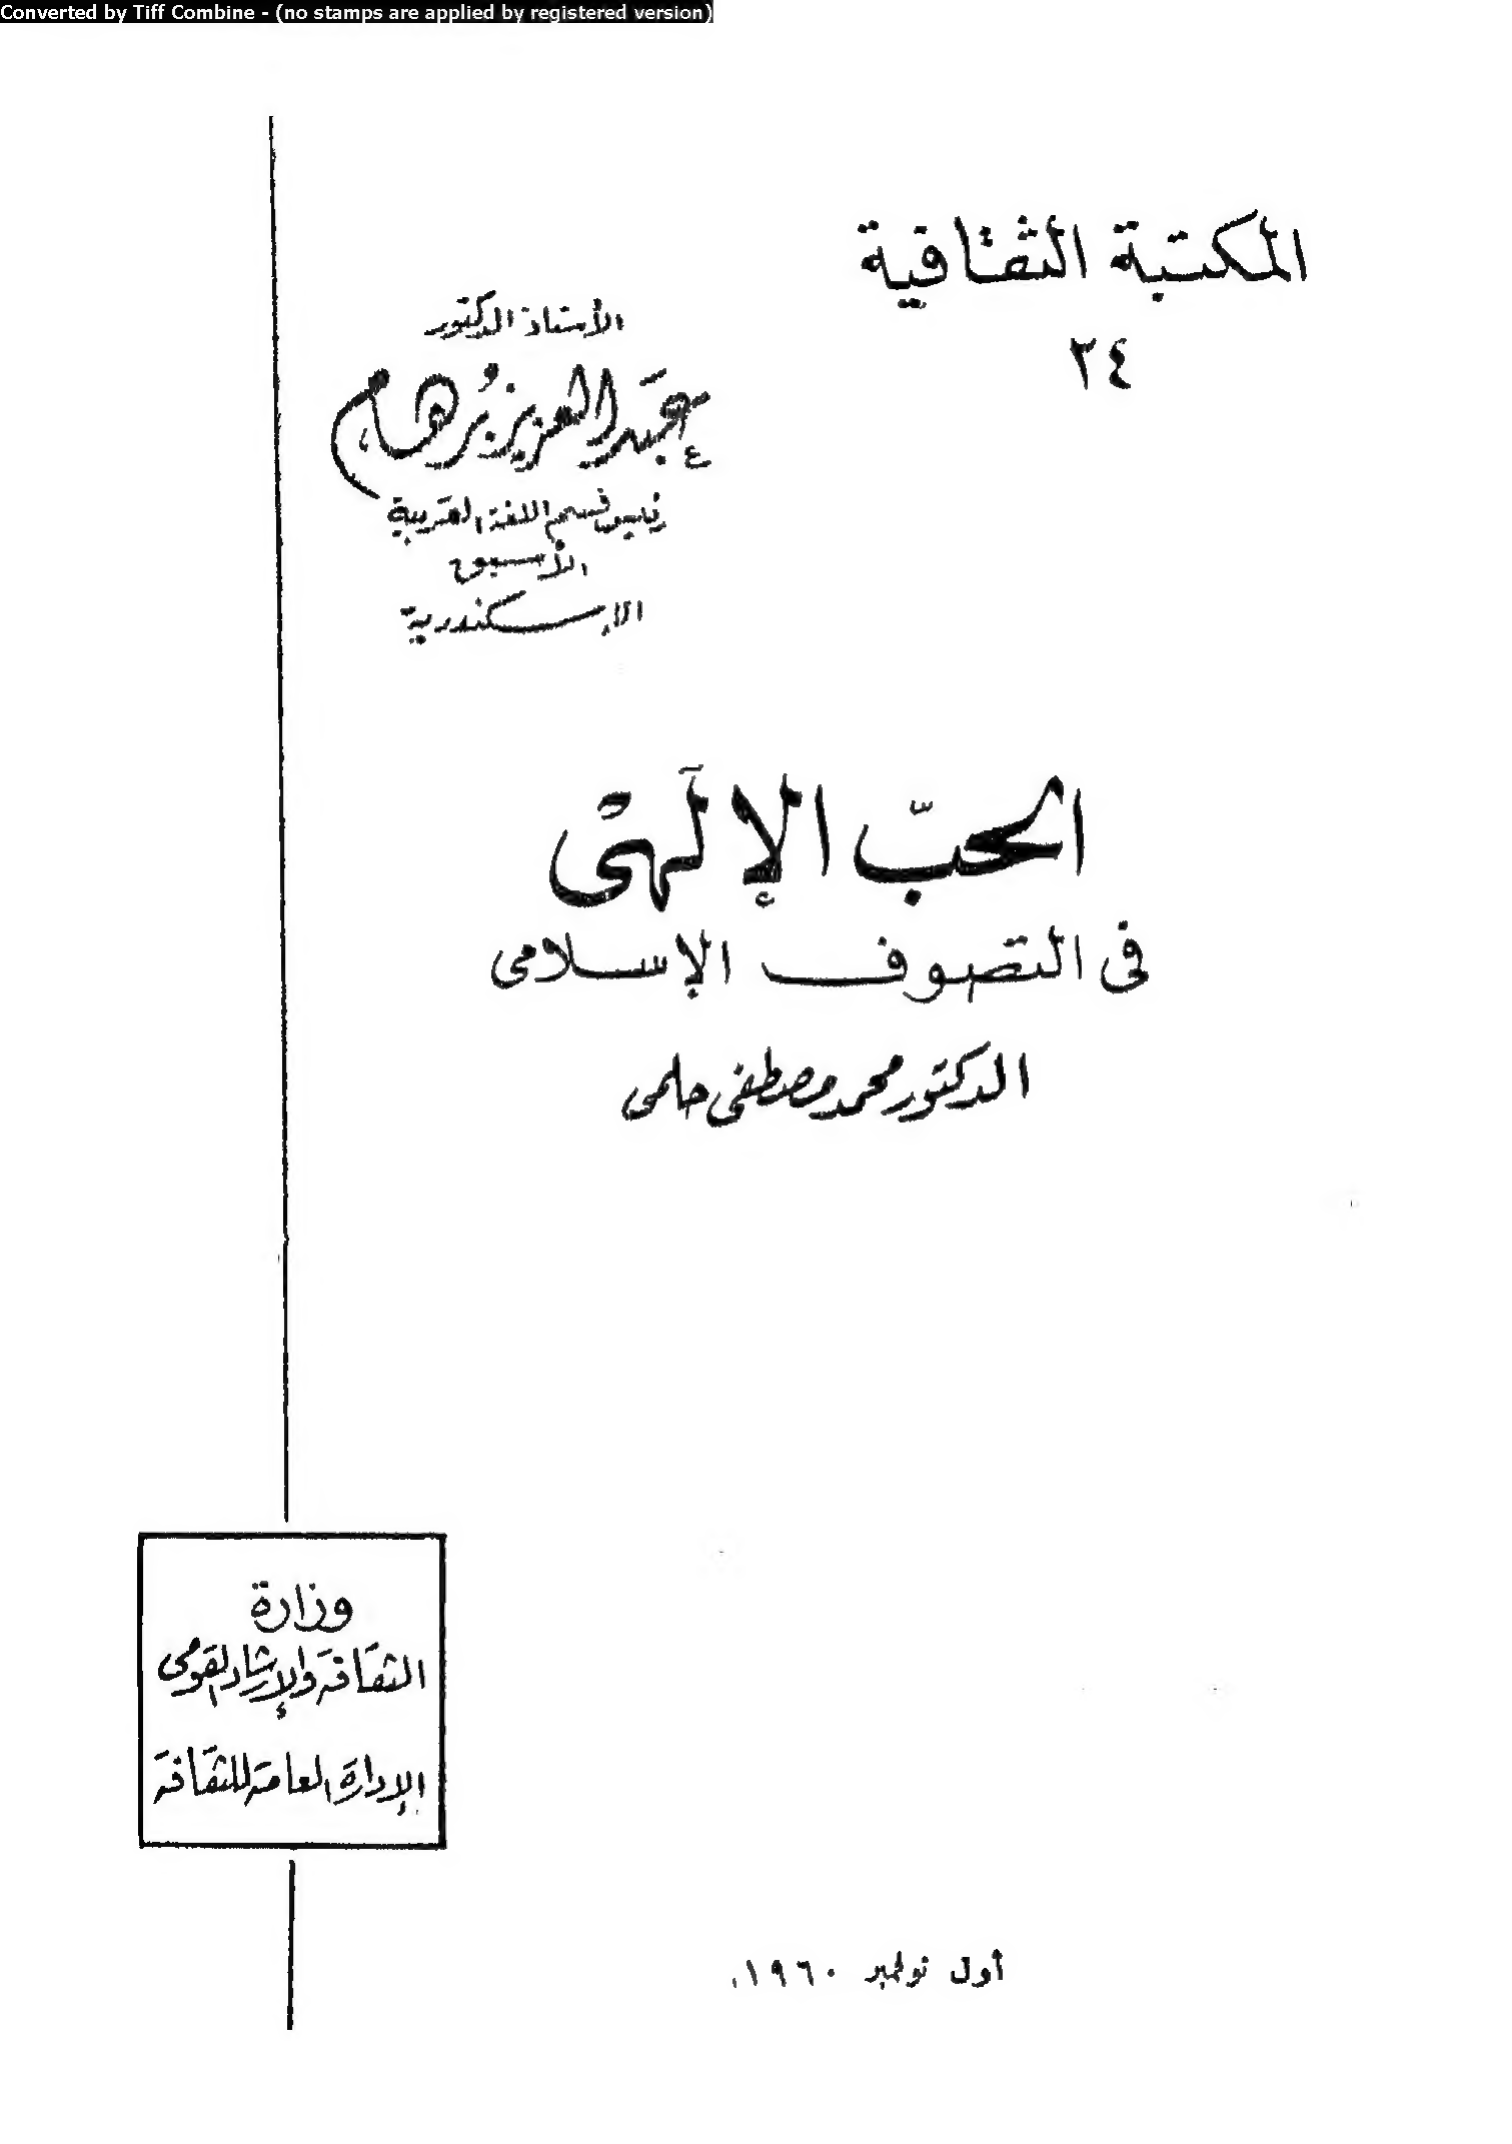 Converted by Tiff Combine - (no stamps are applied by registered version)
المكتبة الثقافية
٢٤
الأستاذ الدكتور
عبد العزيز برهام
رئيس قسم اللغة العربية
الأسبق
الإسكندرية
الحبّ الإلٓهى
فى التصوف الإسلامى
الدكتور محمد مصطفى حلمى
وزارة
الثقافة والإرشاد القومى
الإدارة العامة للثقافة
أول نوفمبر ١٩٦٠